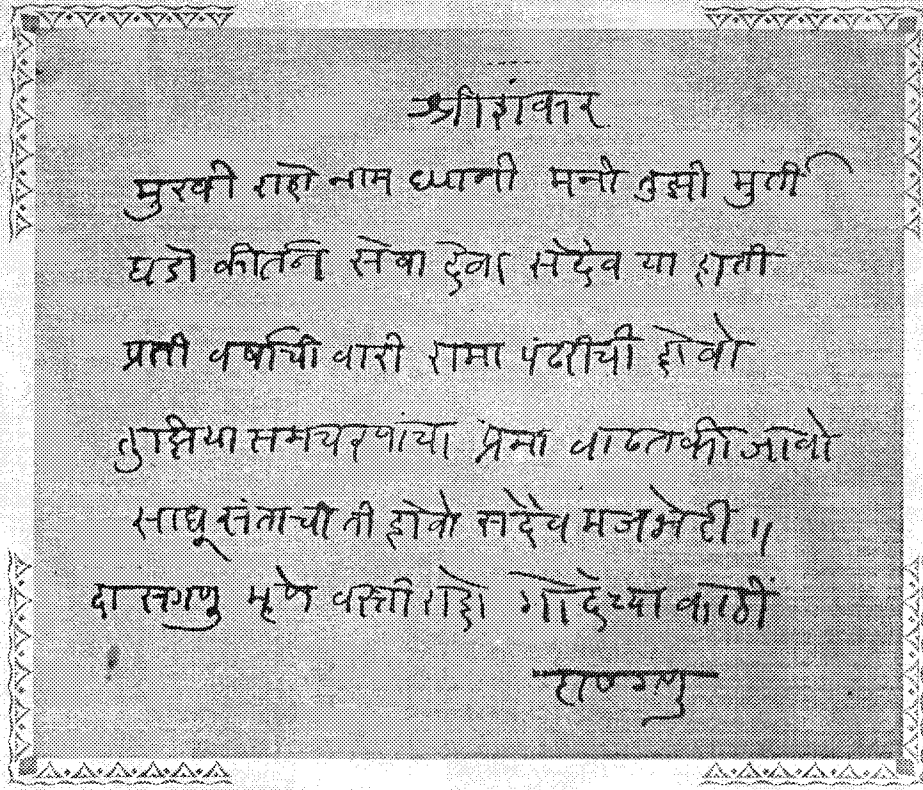 श्रीशंकर
मुखी राहो नाम ध्यानी मनी तुझी मुर्ती
घडो कीर्तन सेवा देवा सदैव या हाती
प्रती वर्षाची वारी रामा पंढरीची होवो
तुझिया समचरणांचा प्रेमा वाढतची जावो
साधू संताची ती होवो सदैव मज भेटी ॥
दासगणु म्हणे वस्ती राहो गोदेच्या काठी
दासगणु